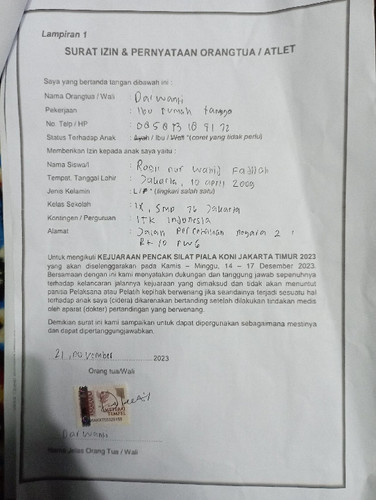 Lampiran 1
SURAT IZIN & PERNYATAAN ORANGTUA / ATLET
Saya yang bertanda tangan dibawah ini :
Nama Orangtua / Wali : Darwani
Pekerjaan : Ibu rumah tangga
No. Telp / HP :
Status Terhadap Anak : Ayah / Ibu / Wali *(coret yang tidak perlu)
Memberikan Izin kepada anak saya yaitu :
Nama Siswa/i : nur wahid Fadilah
Tempat, Tanggal Lahir : Jakarta, 10 april 2009
Jenis Kelamin : L/P * (lingkari salah satu)
Kelas Sekolah : IX, Smp 76 Jakarta
Kontingen / Perguruan : Indonesia
Alamat : Jalan negara 2
Rt 10 rw 6
Untuk mengikuti KEJUARAAN PENCAK SILAT PIALA KONI JAKARTA TIMUR 2023
yang akan diselenggarakan pada Kamis – Minggu, 14 – 17 Desember 2023.
Bersamaan dengan ini kami menyatakan dukungan dan tanggung jawab sepenuhnya
terhadap kelancaran jalannya kejuaraan yang dimaksud dan tidak akan menuntut
panitia Pelaksana atau Pelatih kepihak berwenang jika seandainya terjadi sesuatu hal
terhadap anak saya (cidera) dikarenakan bertanding setelah dilakukan tindakan medis
oleh aparat (dokter) pertandingan yang berwenang.
Demikian surat ini kami sampaikan untuk dapat dipergunakan sebagaimana mestinya
dan dapat dipertanggungjawabkan
21, november 2023
Orang tua/Wali
METERAI
TEMPEL
Darwani
Nama jelas Orang Tua / Wali